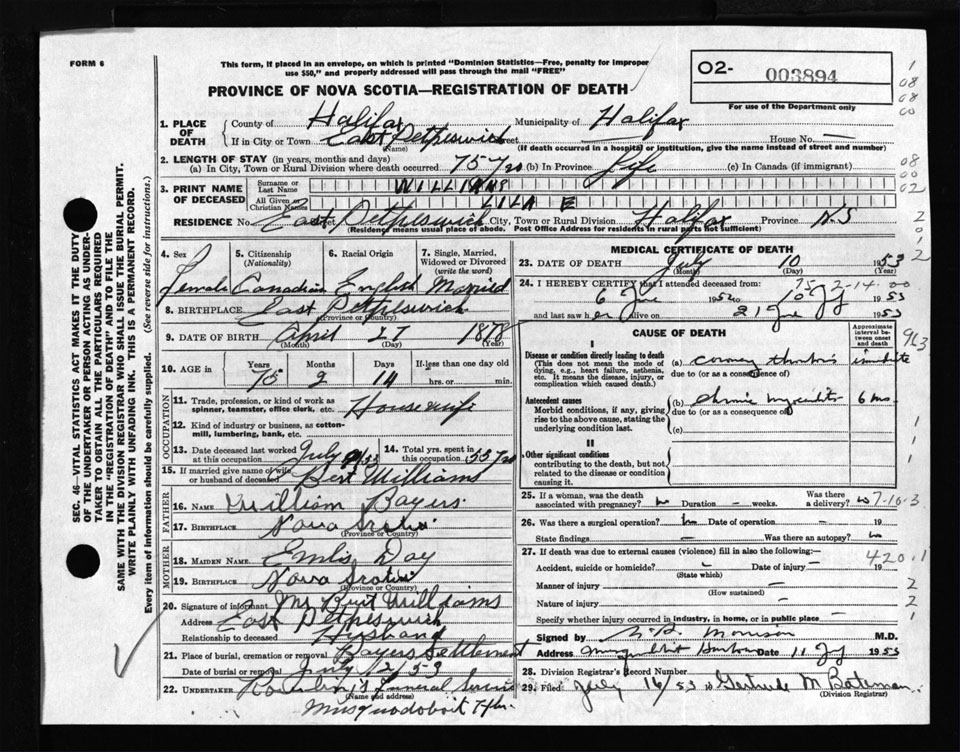 FORM 6
This form, if placed in an envelope, on which is printed "Dominion Statistics—Free, penalty for improper
use $50," and properly addressed will pass through the mail "FREE"
PROVINCE OF NOVA SCOTIA—REGISTRATION OF DEATH
02- 003894
For use of the Department only
1. PLACE OF DEATH
County of Halifax Municipality of Halifax
If in City or Town East Petpeswick Street House No. —
(Name) (If death occurred in a hospital or institution, give the name instead of street and number)
2. LENGTH OF STAY (in years, months and days)
(a) In City, Town or Rural Division where death occurred 75 yrs (b) In Province Life (c) In Canada (if immigrant)
3. PRINT NAME OF DECEASED
Surname or Last Name WILLIAMS
All Given or Christian Names LILA E
RESIDENCE No. East Petpeswick Street City, Town or Rural Division Halifax Province N.S
(Residence means usual place of abode. Post Office Address for residents in rural parts not sufficient)
4. Sex Female
5. Citizenship (Nationality) Canadian
6. Racial Origin English
7. Single, Married, Widowed or Divorced (write the word) Married
8. BIRTHPLACE East Petpeswick
(Province or Country)
9. DATE OF BIRTH April 27 1878
(Month) (Day) (Year)
10. AGE in Years 75 Months 2 Days 14 If less than one day old
hrs. or min.
OCCUPATION
11. Trade, profession, or kind of work as spinner, teamster, office clerk, etc. Housewife
12. Kind of industry or business, as cotton-mill, lumbering, bank, etc.
13. Date deceased last worked at this occupation July
14. Total yrs. spent in this occupation 55 yrs
15. If married give name of wife or husband of deceased Bert Williams
FATHER
16. NAME William Bayers
17. BIRTHPLACE Nova Scotia
(Province or Country)
MOTHER
18. MAIDEN NAME Day
19. BIRTHPLACE Nova Scotia
(Province or Country)
20. Signature of informant Mr Burt Williams
Address East Petpeswick
Relationship to deceased Husband
21. Place of burial, cremation or removal Bayers Settlement
Date of burial or removal July 12 53
22. UNDERTAKER Funeral Service
(Name and address)
Musquodoboit Hbr.
MEDICAL CERTIFICATE OF DEATH
23. DATE OF DEATH July 10 1953
(Month) (Day) (Year)
24. I HEREBY CERTIFY that I attended deceased from:
6 June 1952 to 10 Jy 1953
and last saw her alive on 21 June 1953
CAUSE OF DEATH
Approximate interval between onset and death
I
Disease or condition directly leading to death
(This does not mean the mode of dying, e.g., heart failure, asthenia, etc. It means the disease, injury, or complication which caused death.)
(a) coronary thrombosis
due to (or as a consequence of)
Antecedent causes
Morbid conditions, if any, giving rise to the above cause, stating the underlying condition last.
(b) chronic myocarditis 6 mos.
due to (or as a consequence of)
(c)
II
Other significant conditions
contributing to the death, but not related to the disease or condition causing it.
25. If a woman, was the death associated with pregnancy? no Duration — weeks. Was there a delivery? no
26. Was there a surgical operation? no Date of operation — 19
State findings — Was there an autopsy? no
27. If death was due to external causes (violence) fill in also the following:—
Accident, suicide or homicide? — Date of injury — 19
(State which)
Manner of injury —
(How sustained)
Nature of injury —
Specify whether injury occurred in industry, in home, or in public place —
Signed by Morrison M.D.
Address Musquodoboit Harbour Date 11 Jy 1953
28. Division Registrar's Record Number
29. Filed July 16/53 19 Gertrude M Bateman
(Division Registrar)
SEC. 46—VITAL STATISTICS ACT MAKES IT THE DUTY
OF THE UNDERTAKER OR PERSON ACTING AS UNDER-
TAKER TO OBTAIN ALL THE PARTICULARS REQUIRED
IN THE "REGISTRATION OF DEATH" AND TO FILE THE
SAME WITH THE DIVISION REGISTRAR WHO SHALL ISSUE THE BURIAL PERMIT.
WRITE PLAINLY WITH UNFADING INK. THIS IS A PERMANENT RECORD.
Every item of information should be carefully supplied. (See reverse side for instructions.)
1
08
08
00
08
00
02
2
0
1
2
75 2-14-00
963
1
1
1
7-10-3
420.1
2
2
1